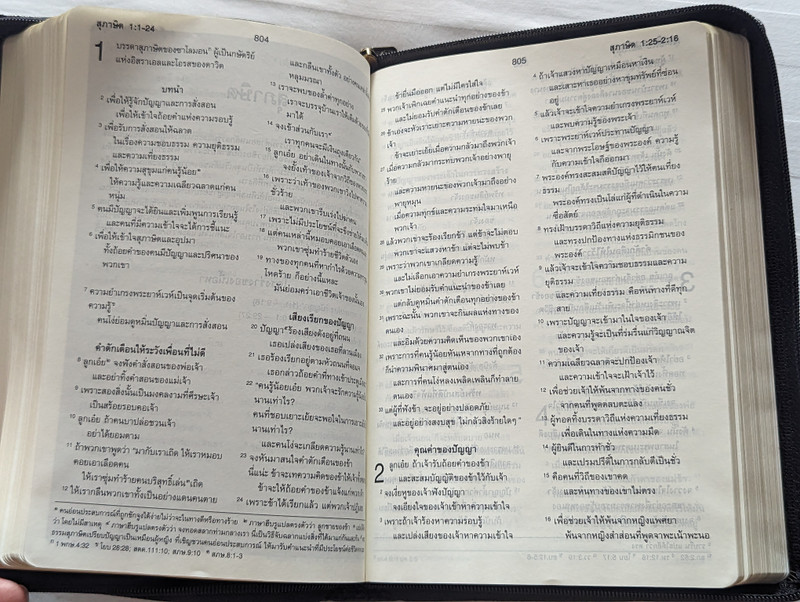 สุภาษิต 1:1-24
804
1 บรรดาสุภาษิตของซาโลมอน ผู้เป็นกษัตริย์
แห่งอิสราเอลและโอรสของดาวิด
บทนำ
2 เพื่อให้รู้จักปัญญาและการสั่งสอน
เพื่อให้เข้าใจถ้อยคำแห่งความรอบรู้
3 เพื่อรับการสั่งสอนให้ฉลาด
ในเรื่องความชอบธรรม ความยุติธรรม
และความเที่ยงธรรม
4 เพื่อให้ความสุขุมแก่คนรู้น้อย
ให้ความรู้และความเฉลียวฉลาดแก่คน
หนุ่ม
5 คนมีปัญญาจะได้ยินและเพิ่มพูนการเรียนรู้
และคนที่มีความเข้าใจจะได้การชี้แนะ
6 เพื่อให้เข้าใจสุภาษิตและอุปมา
ทั้งถ้อยคำของคนมีปัญญาและปริศนาของ
พวกเขา
7 ความยำเกรงพระยาห์เวห์เป็นจุดเริ่มต้นของ
ความรู้
คนโง่ย่อมดูหมิ่นปัญญาและการสั่งสอน
คำตักเตือนให้ระวังเพื่อนที่ไม่ดี
8 ลูกเอ๋ย จงฟังคำสั่งสอนของพ่อเจ้า
และอย่าทิ้งคำสอนของแม่เจ้า
9 เพราะสองสิ่งนั้นเป็นมงคลงามที่ศีรษะเจ้า
เป็นสร้อยรอบคอเจ้า
10 ลูกเอ๋ย ถ้าคนบาปล่อชวนเจ้า
อย่าได้ยอมตาม
11 ถ้าพวกเขาพูดว่า "มากับเราเถิด ให้เราหมอบ
คอยเอาเลือดคน
ให้เราซุ่มทำร้ายคนบริสุทธิ์เล่นเถิด
12 ให้เรากลืนพวกเขาทั้งเป็นอย่างแดนคนตาย
และกลืนเขาทั้งตัว
หลุมมรณา
13 เราจะพบของล้ำค่าทุกอย่าง
เราจะบรรจุบ้านเราให้เต็มด้วย
มาได้
14 จงเข้าส่วนกับเรา
เราทุกคนจะมีเงินถุงเดียวกัน"
15 ลูกเอ๋ย อย่าเดินในทางนั้นกับ
จงยั้งเท้าของเจ้าจากวิถีของ
16 เพราะว่าเท้าของพวกเขาวิ่งไปหา
ชั่วร้าย
และพวกเขารีบเร่งไป
17 เพราะไม่มีประโยชน์ที่จะขึง
18 แต่คนเหล่านี้หมอบคอยเอาเลือด
พวกเขาซุ่มทำร้ายชีวิตตัวเอง
19 ทางของทุกคนที่หากำไรด้วยความ
โหดร้าย ก็อย่างนี้แหละ
มันย่อมคร่าเอาชีวิตเจ้าของนั้น
เสียงเรียกของปัญญา
20 ปัญญาร้องเสียงดังอยู่ที่ถนน
เธอเปล่งเสียงของเธอที่ลานเมือง
21 เธอร้องเรียกอยู่ตามหัวถนนที่จอแจ
เธอกล่าวถ้อยคำที่ทางเข้าประตู
22 "คนรู้น้อยเอ๋ย พวกเจ้าจะรักความรู้น้อย
นานเท่าไร?
คนที่ชอบเยาะเย้ยจะพอใจในการเยาะเย้ย
นานเท่าไร?
และคนโง่จะเกลียดความรู้นาน
23 จงหันมาสนใจคำตักเตือนของข้า
นี่แน่ะ ข้าจะเทความคิดของข้าให้
ข้าจะให้ถ้อยคำของข้าแจ้งแก่
24 เพราะข้าได้เรียกแล้ว แต่พวกเจ้า
1 1 พกษ.4:32 โยบ 28:28; สดด.111:10; สภษ.9:10 สภษ.8:1-3
805
สุภาษิต 1:25-2:16
ข้ายื่นมือออก แต่ไม่มีใครใส่ใจ
25 พวกเจ้าเพิกเฉยคำแนะนำทุกอย่างของข้า
และไม่ยอมรับคำตักเตือนของข้าเลย
26 ข้าเองจะหัวเราะเยาะความหายนะของพวก
เจ้า
ข้าจะเยาะเย้ยเมื่อความกลัวมาถึงพวกเจ้า
27 เมื่อความกลัวมากระทบพวกเจ้าอย่างพายุ
ร้าย
และความหายนะของพวกเจ้ามาถึงอย่าง
พายุหมุน
เมื่อความทุกข์และความระทมใจมาเหนือ
28 แล้วพวกเขาจะร้องเรียกข้า แต่ข้าจะไม่ตอบ
พวกเขาจะแสวงหาข้า แต่จะไม่พบข้า
29 เพราะว่าพวกเขาเกลียดความรู้
และไม่เลือกเอาความยำเกรงพระยาห์เวห์
30 พวกเขาไม่ยอมรับคำแนะนำของข้าเลย
แต่กลับดูหมิ่นคำตักเตือนทุกอย่างของข้า
31 เพราะฉะนั้น พวกเขาจะกินผลแห่งทางของ
ตนเอง
และอิ่มด้วยความคิดเห็นของพวกเขาเอง
32 เพราะการที่คนรู้น้อยหันจากทางที่ถูกต้อง
ก็นำความพินาศมาสู่ตนเอง
และการที่คนโง่หลงเพลิดเพลินก็ทำลาย
ตนเอง
33 แต่ผู้ที่ฟังข้า จะอยู่อย่างปลอดภัย
และอยู่อย่างสงบสุข ไม่กลัวสิ่งร้ายใดๆ"
คุณค่าของปัญญา
2 ลูกเอ๋ย ถ้าเจ้ารับถ้อยคำของข้า
และสะสมบัญญัติของข้าไว้กับเจ้า
2 จงเงี่ยหูของเจ้าฟังปัญญา
จงเอียงใจของเจ้าเข้าหาความเข้าใจ
3 เพราะถ้าเจ้าร้องหาความรอบรู้
และเปล่งเสียงของเจ้าหาความเข้าใจ
4 ถ้าเจ้าแสวงหาปัญญาเหมือนหาเงิน
และเสาะหาเธออย่างหาขุมทรัพย์ที่ซ่อน
อยู่
5 แล้วเจ้าจะเข้าใจความยำเกรงพระยาห์เวห์
และพบความรู้ของพระเจ้า
6 เพราะพระยาห์เวห์ประทานปัญญา
และจากพระโอษฐ์ของพระองค์ ความรู้
กับความเข้าใจก็ออกมา
7 พระองค์ทรงสะสมสติปัญญาไว้ให้คนเที่ยง
ธรรม
พระองค์ทรงเป็นโล่แก่ผู้ที่ดำเนินในความ
ซื่อสัตย์
8 ทรงเฝ้าบรรดาวิถีแห่งความยุติธรรม
และทรงปกป้องทางแห่งธรรมิกชนของ
พระองค์
9 แล้วเจ้าจะเข้าใจความชอบธรรมและความ
ยุติธรรม
และความเที่ยงธรรม คือหนทางที่ดีทุก
สาย
10 เพราะปัญญาจะเข้ามาในใจของเจ้า
และความรู้จะเป็นที่ร่มรื่นแก่วิญญาณจิต
ของเจ้า
11 ความเฉลียวฉลาดจะปกป้องเจ้า
และความเข้าใจจะเฝ้าเจ้าไว้
12 เพื่อช่วยเจ้าให้พ้นจากทางของคนชั่ว
จากคนที่พูดตลบตะแลง
13 ผู้ทอดทิ้งบรรดาวิถีแห่งความเที่ยงธรรม
เพื่อเดินในทางแห่งความมืด
14 ผู้ยินดีในการทำชั่ว
และเปรมปรีดิ์ในการกลับดีเป็นชั่ว
15 คือคนที่วิถีของเขาคด
และหนทางของเขาไม่ตรง
16 เพื่อช่วยเจ้าให้พ้นจากหญิงแพศยา
พ้นจากหญิงสำส่อนที่พูดจาพะเน้าพะนอ